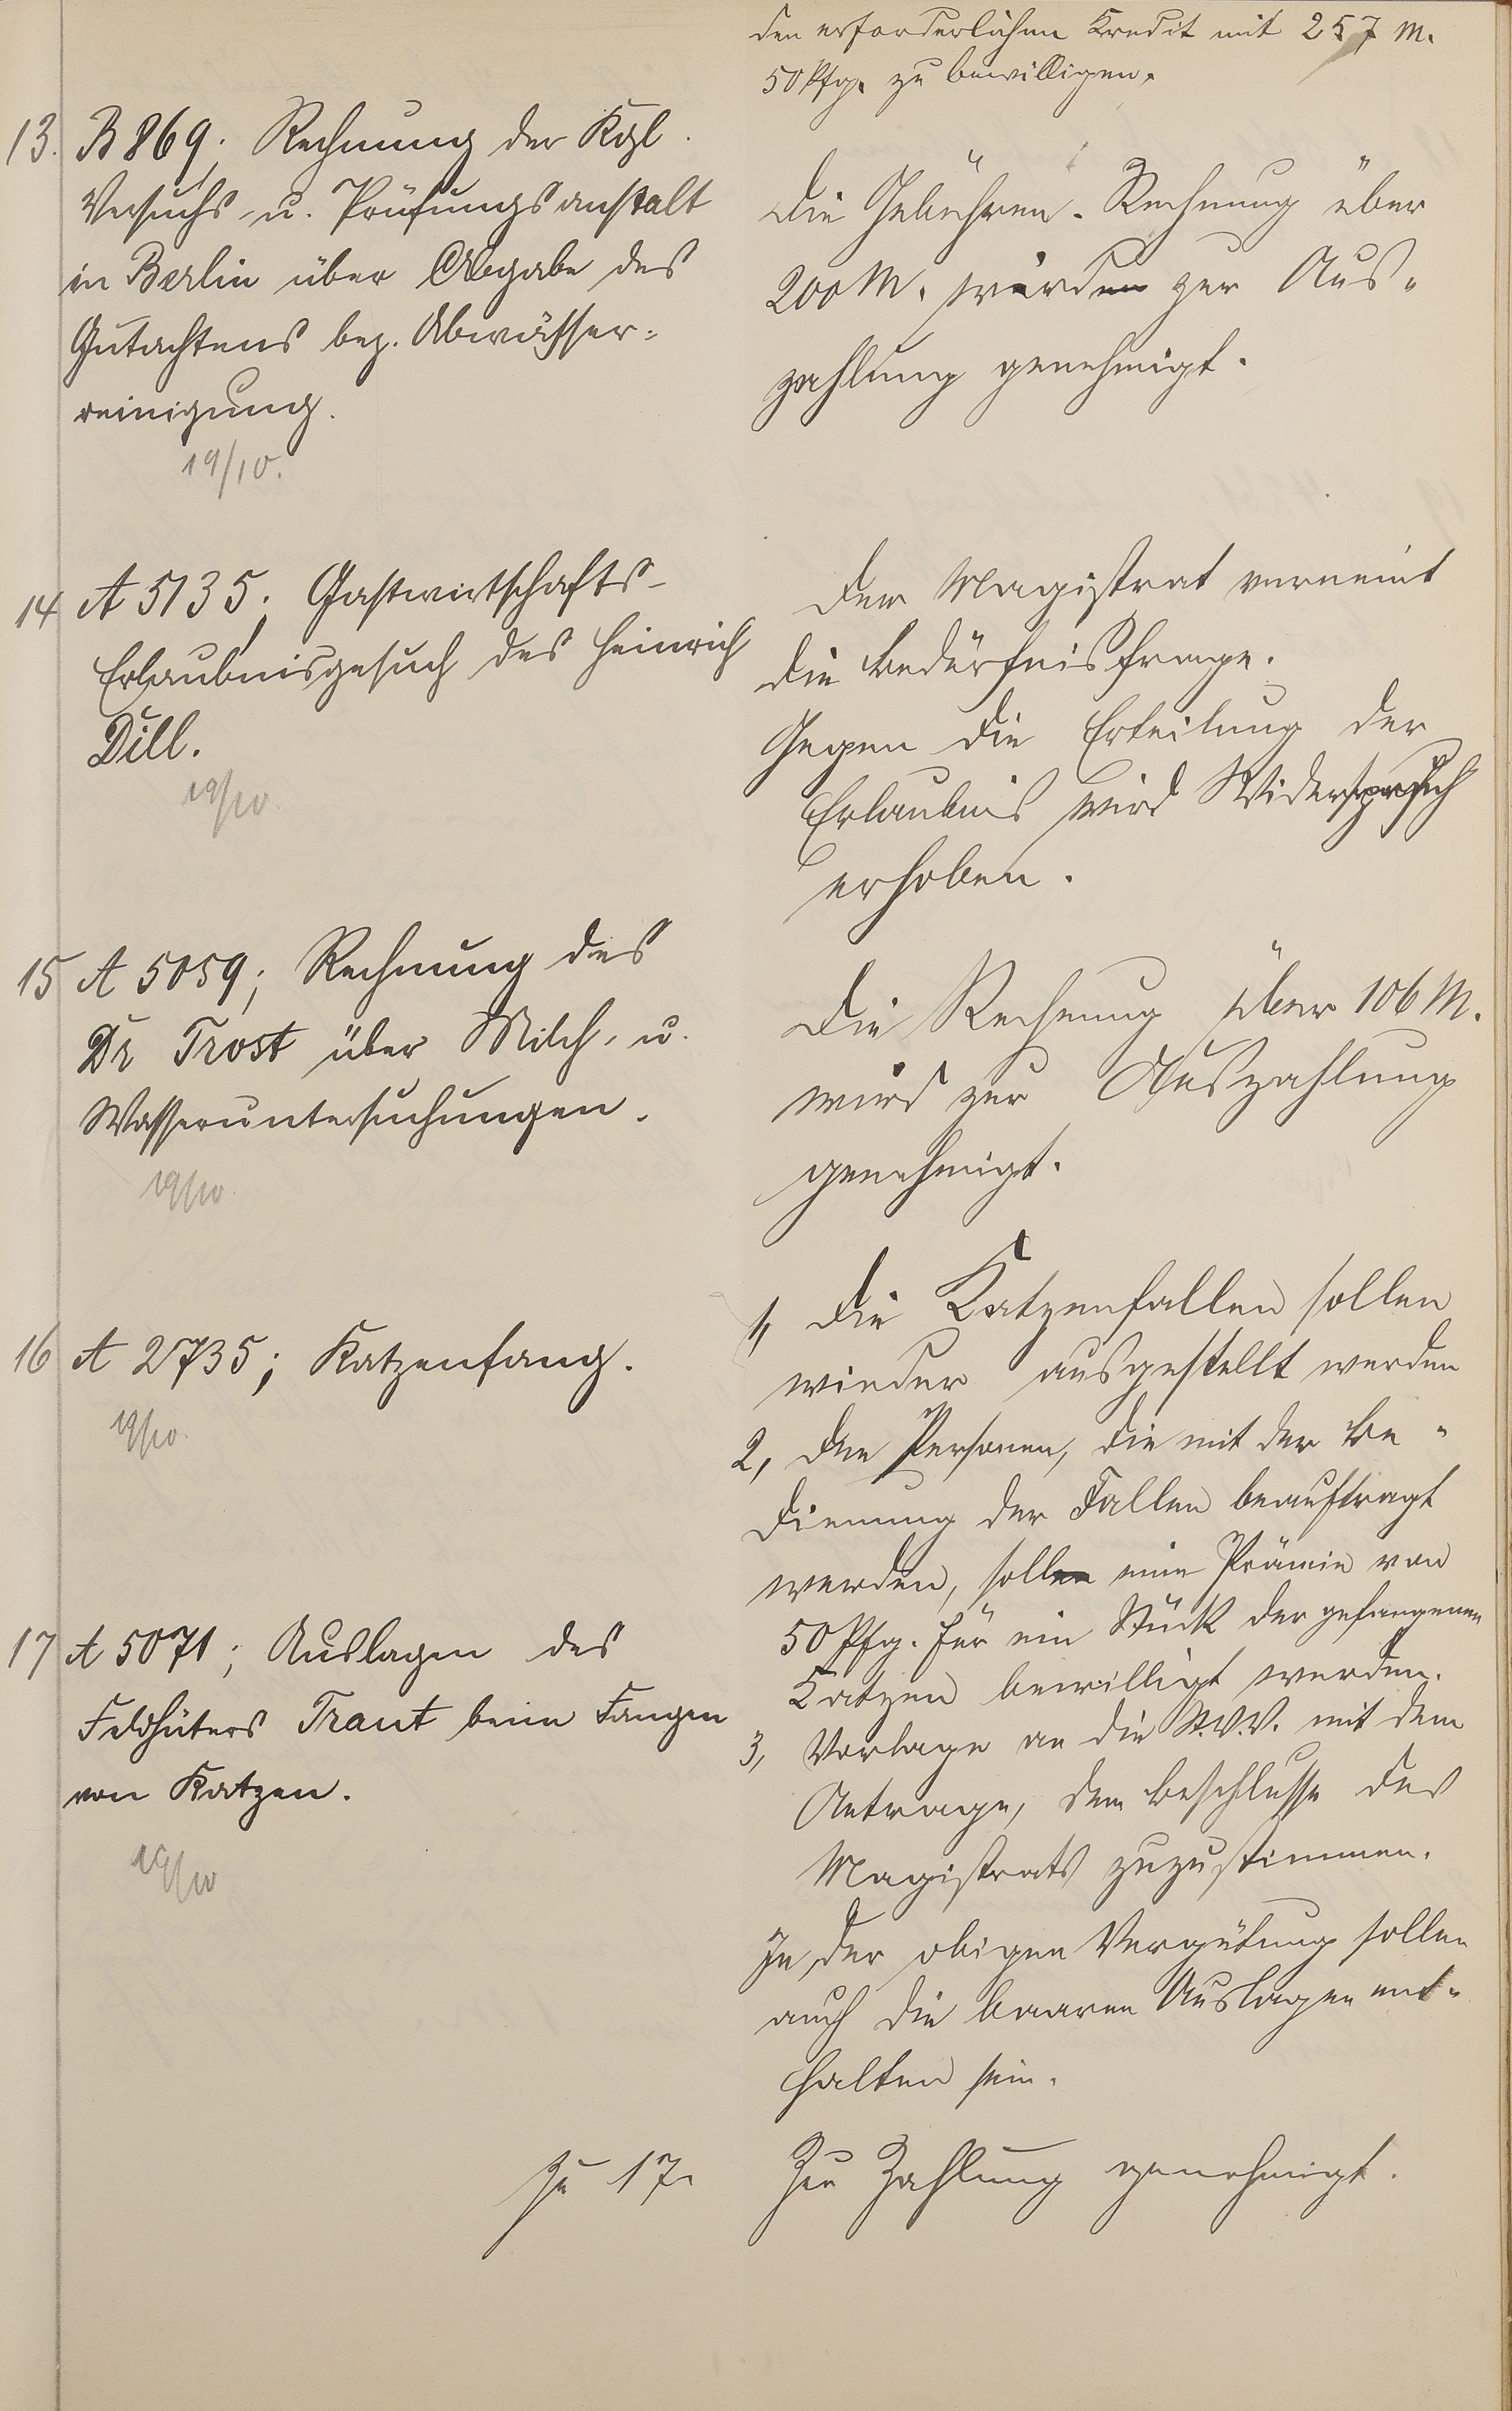 den erforderlichen Kredit mit 257 M.
50 Pfg. zu bewilligen.
13. B 869; Rechnung der Kgl.
Versuchs- u. Prüfungsanstalt
in Berlin über Abgabe des
Gutachtens bez. Abwässer-
reinigung.
19/10.
Die Gebühren-Rechnung über
200 M. wird zur Aus-
zahlung genehmigt.
14 A 5135; Gastwirtschafts-
Erlaubnisgesuch des Heinrich
Dill.
19/10
Der Magistrat verneint
die Bedürfnisfrage.
Gegen die Erteilung der
Erlaubnis wird Widerspruch
erhoben.
15 A 5059; Rechnung des
Dr Trost über Milch- u.
Wasseruntersuchungen.
19/10.
Die Rechnung über 106 M.
wird zur Auszahlung
genehmigt.
16 A 2735; Katzenfang.
19/10.
1, Die Katzenfallen sollen
wieder ausgestellt werden
2, Den Personen, die mit der Be-
dienung der Fallen beauftragt
werden, soll eine Prämie von
50 Pfg. für ein Stück der gefangenen
Katzen bewilligt werden.
3, Vorlage an die St.V.V. mit dem
Antrage, dem Beschlusse des
Magistrats zuzustimmen.
In der obigen Vergütung sollen
auch die baaren Auslagen ent-
halten sein.
17 A 5071; Auslagen des
Feldhüters Traut beim Fangen
von Katzen.
19/10
Zu 17. Zur Zahlung genehmigt.